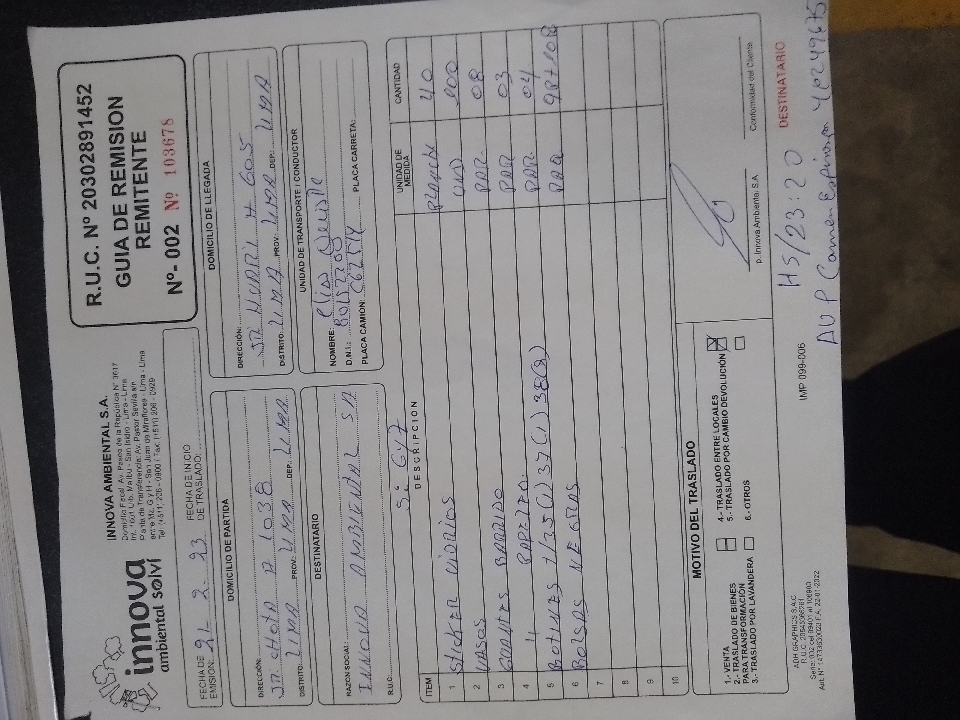 innova
ambiental solvi
INNOVA AMBIENTAL S.A.
Domicilio Fiscal: Av. Paseo de la República N° 3617
Int. 1601 Urb. Malibu - San Isidro - Lima - Lima
Planta de Transferencia: Av. Pastor Sevilla s/n
entre Mz. G y H - San Juan de Miraflores - Lima - Lima
R.U.C. Nº 20302891452
GUIA DE REMISION
REMITENTE
Nº- 002 Nº 103678
FECHA DE EMISIÓN: 21-2-23
FECHA DE INICIO DE TRASLADO:
DOMICILIO DE PARTIDA
DIRECCIÓN: JR. CHOTA A 1038
DISTRITO: LIMA PROV: LIMA DEP: LIMA
DOMICILIO DE LLEGADA
DIRECCIÓN: JR HUARI # 605
DISTRITO: LIMA PROV: LIMA DEP: LIMA
DESTINATARIO
RAZON SOCIAL: INNOVA AMBIENTAL SA
R.U.C.:
UNIDAD DE TRANSPORTE / CONDUCTOR
NOMBRE:
D.N.I.:
PLACA CAMION: PLACA CARRETA:
ITEM DESCRIPCION UNIDAD DE MEDIDA CANTIDAD
1 STICKER VIDRIOS PLANCHA 40
2 VASOS UND
3 GUANTES BARRIDO PAR 03
4 " PAPELEO PAR 04
5 BOTINES 1/35(1) 37(1) 38(2) PAR
6 BOLSAS NEGRAS PAQ
7
8
9
10
MOTIVO DEL TRASLADO
1.- VENTA
2.- TRASLADO DE BIENES PARA TRANSFORMACIÓN
3.- TRASLADO POR LAVANDERA
4.- TRASLADO ENTRE LOCALES
5.- TRASLADO POR CAMBIO DEVOLUCIÓN
6.- OTROS
p. Innova Ambiental, S.A
Conformidad del Cliente
ADH GRAPHICS S.A.C.
IMP 099-006
DESTINATARIO
H5/23:20
AVP Carmen Espinoza 40249675